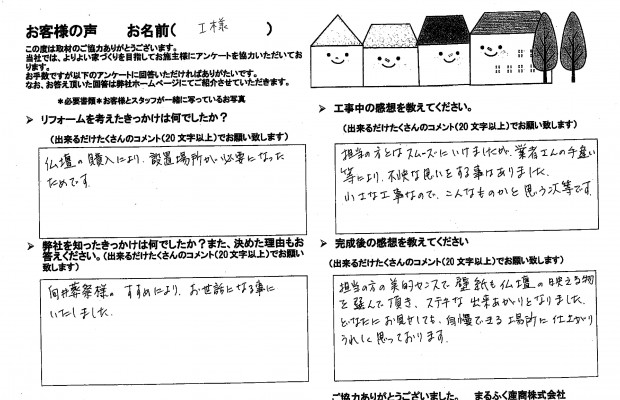 お客様の声　お名前(　I様　)
この度は取材のご協力ありがとうございます。
当社では、よりよい家づくりを目指してお施主様にアンケートを協力いただいております。
お手数ですが以下のアンケートに回答いただければありがたいです。
なお、お答え頂いた回答は弊社ホームページにてご紹介させていただきます。
＊必要書類＊お客様とスタッフが一緒に写っているお写真
➢ リフォームを考えたきっかけは何でしたか？
（出来るだけたくさんのコメント（20文字以上）でお願い致します）
仏壇の購入により、設置場所が必要になった
ためです。
➢ 弊社を知ったきっかけは何でしたか？また、決めた理由もお
答えください。（出来るだけたくさんのコメント（20文字以上）でお願い
致します）
向井葬祭様の すすめにより、お世話になる事に
いたしました。
➢ 工事中の感想を教えてください。
（出来るだけたくさんのコメント（20文字以上）でお願い致します）
担当の方とはスムーズにいけましたが、業者さんの手違い
等により、不快な思いをする事はありました。
小さな工事なので、こんなものかと思う次第です。
➢ 完成後の感想を教えてください
（出来るだけたくさんのコメント（20文字以上）でお願い致します）
担当の方の美的センスで 壁紙も仏壇の映える物
を選んで頂き、ステキな 出来あがりとなりました。
どなたにお見せしても、自慢できる場所に仕上がり
うれしく思っております。
ご協力ありがとうございました。　まるふく産商株式会社